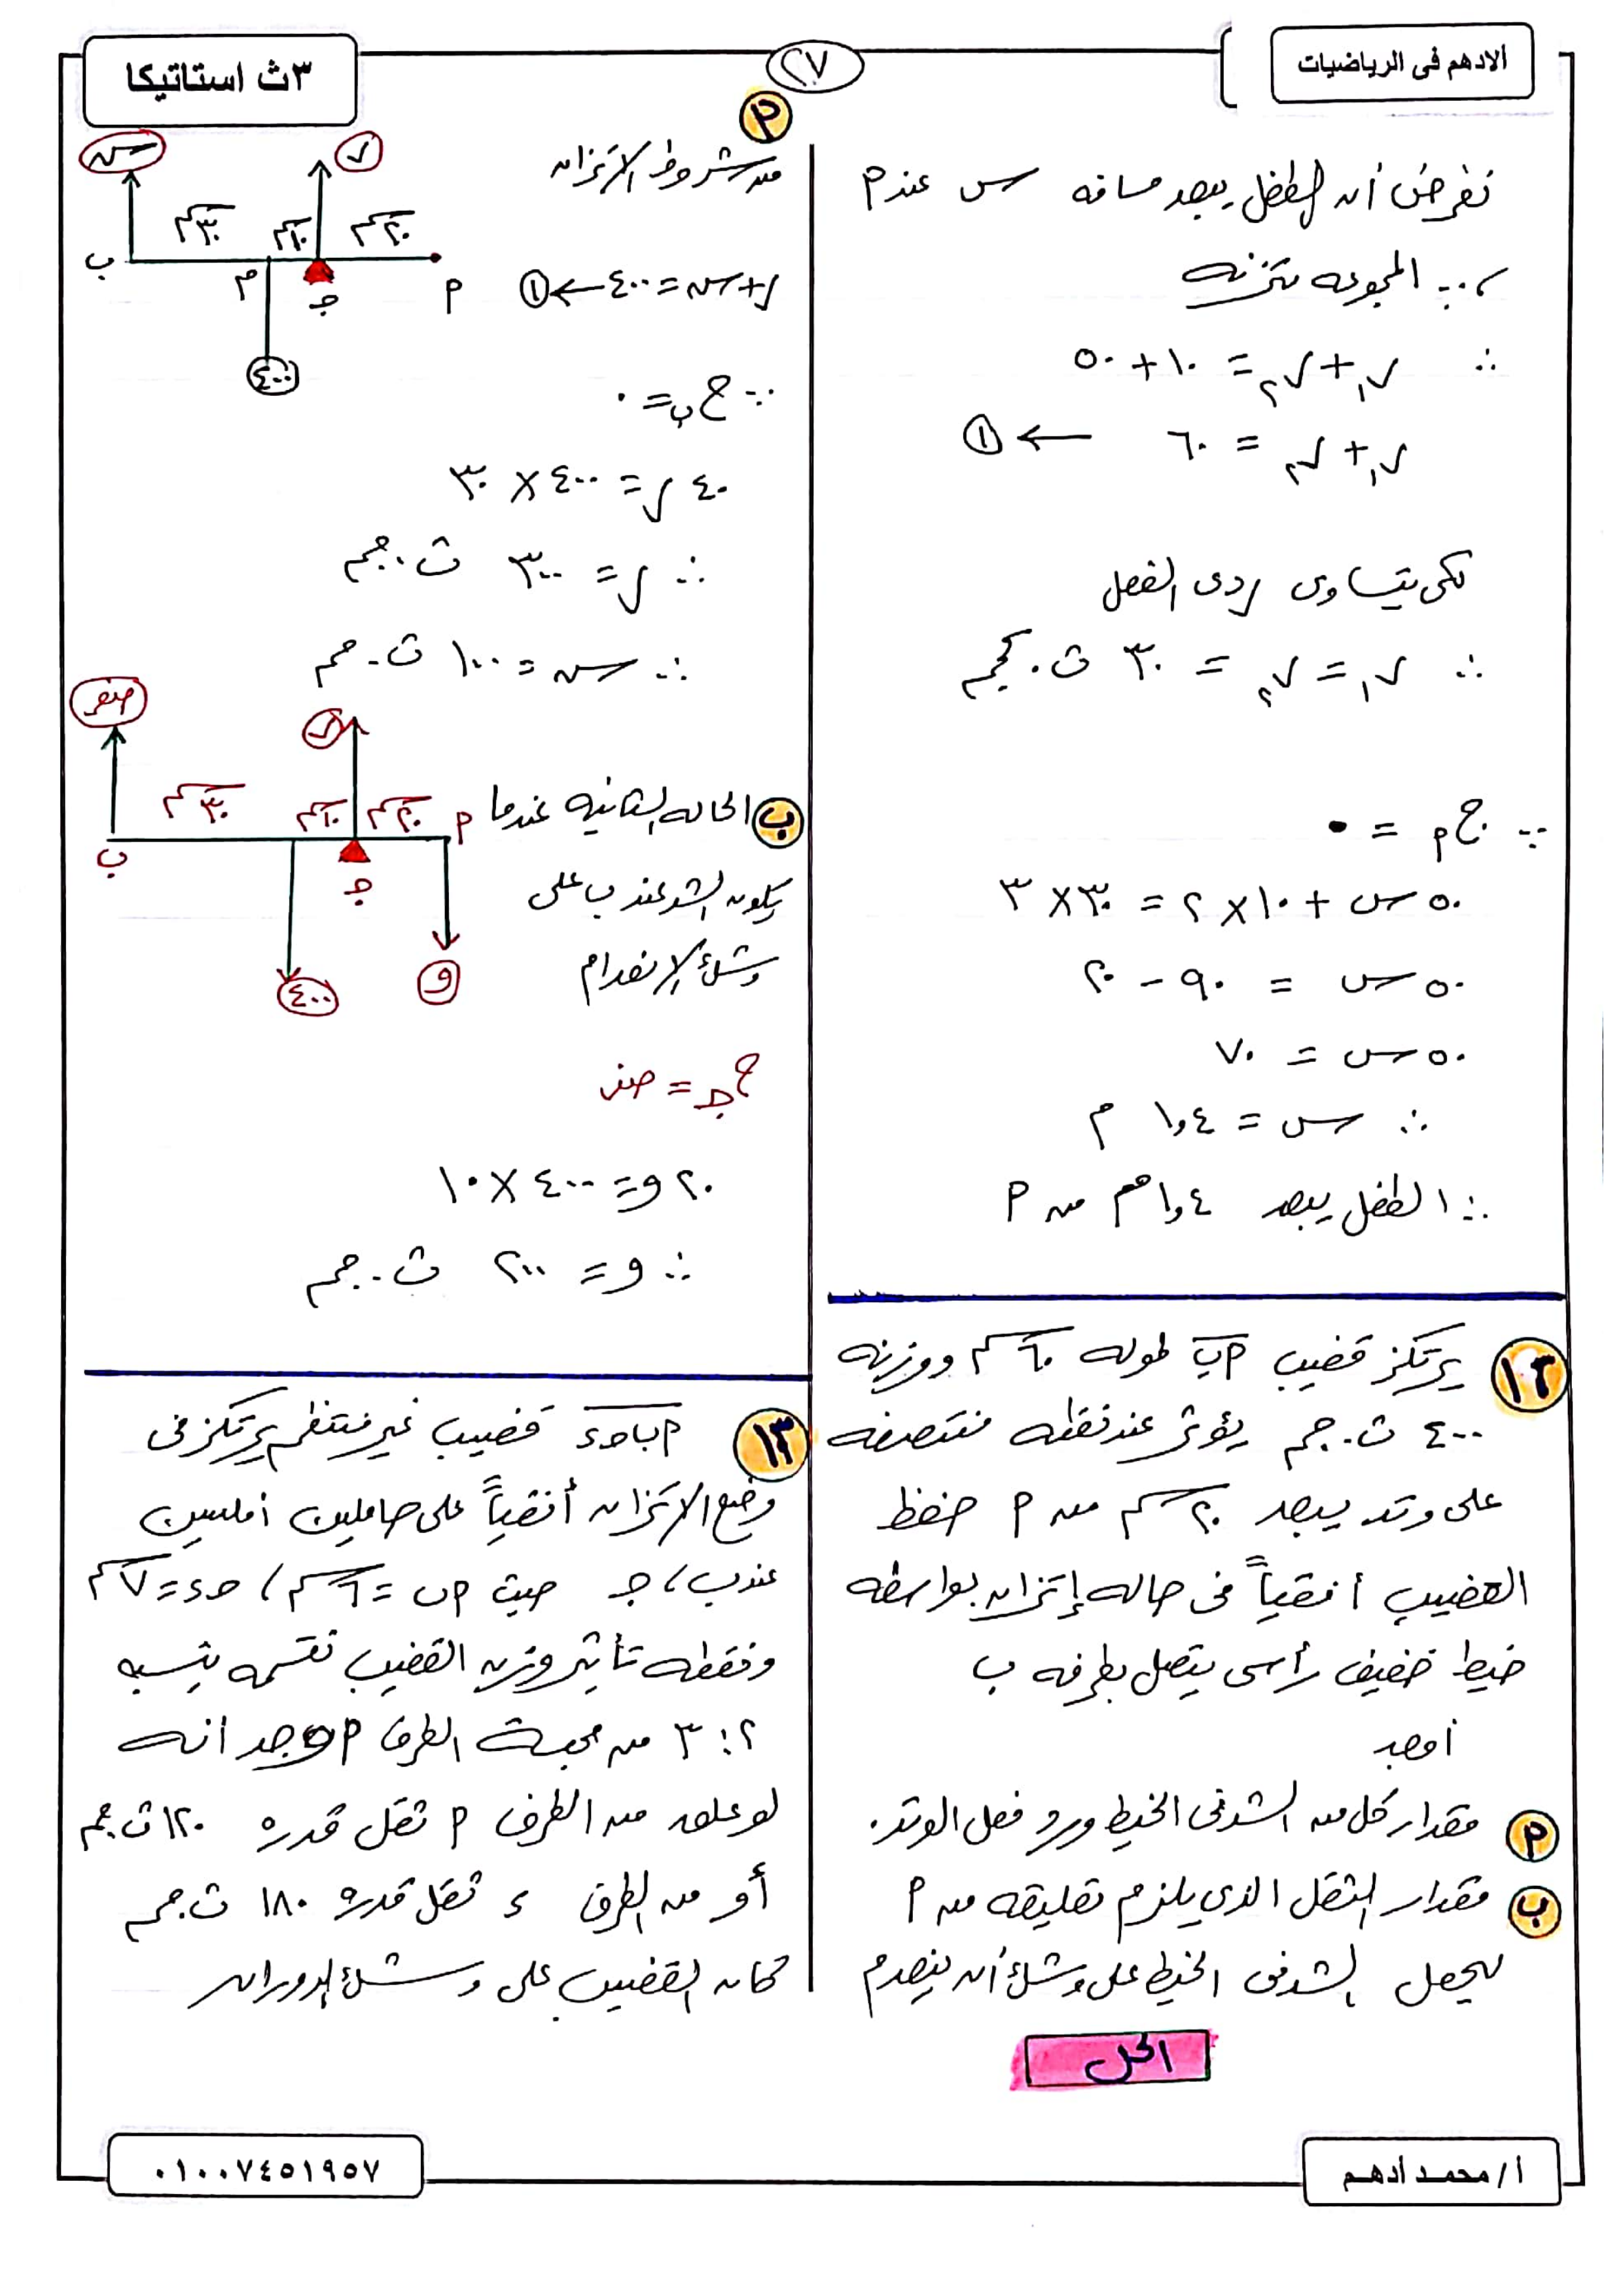 الادهم فى الرياضيات
٢٧
٣ث استاتيكا
نفرض أن الطفل يبعد مسافه س عند م
،∵ المجموعه متزنه
∴ ر١ + ر٢ = ١٠ + ٥٠
ر١ + ر٢ = ٦٠ ← ①
لكى يتساوى ردى الفعل
∴ ر١ = ر٢ = ٣٠ ث.كجم
∵ ج م = ٠
٥٠ س + ١٠ × ٢ = ٣٠ × ٣
٥٠ س = ٩٠ - ٢٠
٥٠ س = ٧٠
∴ س = ١,٤ م
∴ الطفل يبعد ١,٤ م من م
١٢ يرتكز قضيب م ب طوله ٦٠ سم ووزنه
٤٠٠ ث.جم يؤثر عند نقطه منتصفه
على وتد يبعد ٢٠ سم من م حفظ
القضيب أفقياً فى حاله إتزان بواسطه
خيط خفيف رأسى يتصل بطرفه ب
أوجد
م مقدار كل من الشد فى الخيط ورد فعل الوتد.
ب مقدار الثقل الذى يلزم تعليقه من م
ليجعل الشد فى الخيط على وشك أن ينعدم
الحل
م
من شروط الإتزان
ر + س = ٤٠٠ ← ①
∵ ج ب = ٠
٤٠ ر = ٤٠٠ × ٣٠
∴ ر = ٣٠٠ ث.جم
∴ س = ١٠٠ ث.جم
س
ر
٣٠ سم
١٠ سم
٢٠ سم
ب
م
ج
م
٤٠٠
ب الحاله الثانيه عندما
يكون الشد عند ب على
وشك الإنعدام
صفر
ر
٣٠ سم
١٠ سم
٢٠ سم
م
ب
ج
٤٠٠
و
ج ج = صفر
٢٠ و = ٤٠٠ × ١٠
∴ و = ٢٠٠ ث.جم
١٣ م ب ج ء قضيب غير منتظم يرتكز فى
وضع الإتزان أفقياً على حاملين أملسين
عند ب ، ج حيث م ب = ٦ سم ، ج ء = ٧ سم
ونقطه تأثير وزن القضيب تقسمه بنسبه
٢ : ٣ من جهة الطرف م وجد انه
لو علق من الطرف م ثقل قدره ١٢٠ ث.جم
أو من الطرف ء ثقل قدره ١٨٠ ث.جم
كان القضيب على وشك الدوران
أ / محمد أدهم
٠١٠٠٧٤٥١٩٥٧